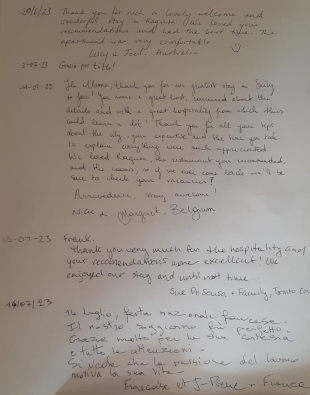 28/6/23 Thank you for such a lovely welcome and
wonderful stay in Ragusa. We loved your
recommendations and had the best time. The
apartment was very comfortable
Lucy & Joel, Australia
Grazie per tutto!
thank you for our greatest stay in Sicily
so far! You were a great host, concerned about the
details and with a great hospitality from which others
could learn a lot! Thank you for all your tips
about the city, your expertise and the time you took
to explain everything were much appreciated.
We loved Ragusa, the restaurant you recommended,
and the so if we ever come back we'll be
sure to check your vacancies!
Arrivederci, stay awesome!
& Margaret, Belgium
13-07-23 Frank.
thank you very much for the hospitality and
your recomendations were excellent! We
enjoyed our stay and until next time...
Sue De Sousa + Family, Toronto
14/07/23 14 luglio, festa nazionale francese.
Il nostro soggiorno fù perfetto.
Grazie molto per la sua cortesia
e tutte le attenzioni.
Si vede che la passione del lavoro
motiva la sua vita.
Françoise et J-Pierre - France